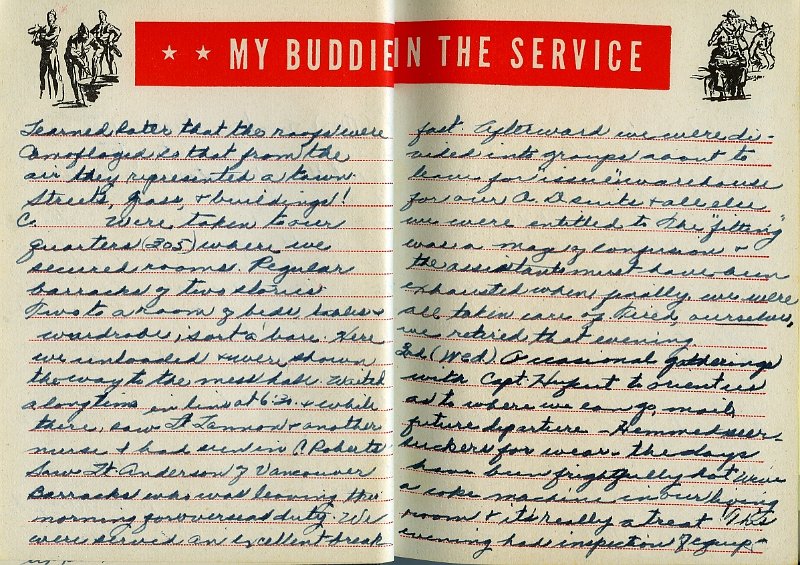 ★ ★ MY BUDDIE IN THE SERVICE
Learned later that the roofs were
Camoflaged so that from the
air they represented a town.
Streets, grass, & buildings!
C. Were taken to our
quarters (305) where we
secured rooms. Regular
barracks of two stories
Two to a room of beds, tables &
wardrobe, sort a' bare. Here
we unloaded & were shown
the way to the mess hall. Waited
a long time in line at 6:30 & while
there, saw Lt Lannon & another
nurse I had seen in C. Roberts
Saw Lt Anderson of Vancouver
Barracks who was leaving this
morning for overseas duty. We
were served an excellent break
fast. Afterward we were di-
vided into groups about to
leave for "issue" warehouse
for our O. D suits & all else
we were entitled to. The "fitting"
was a maze of confusion &
the assistants must have been
exhausted when, finally, we were
all taken care of. Tired, ourselves,
we retired that evening
3rd (Wed) Occasional gatherings
with Capt. to orientees
as to where we can go, mail,
future departure - Hemmed seer-
suckers for wear - the days
have been frightfully hot We've
a coke machine in our living
room & it's really a treat This
evening had inspection of equip-